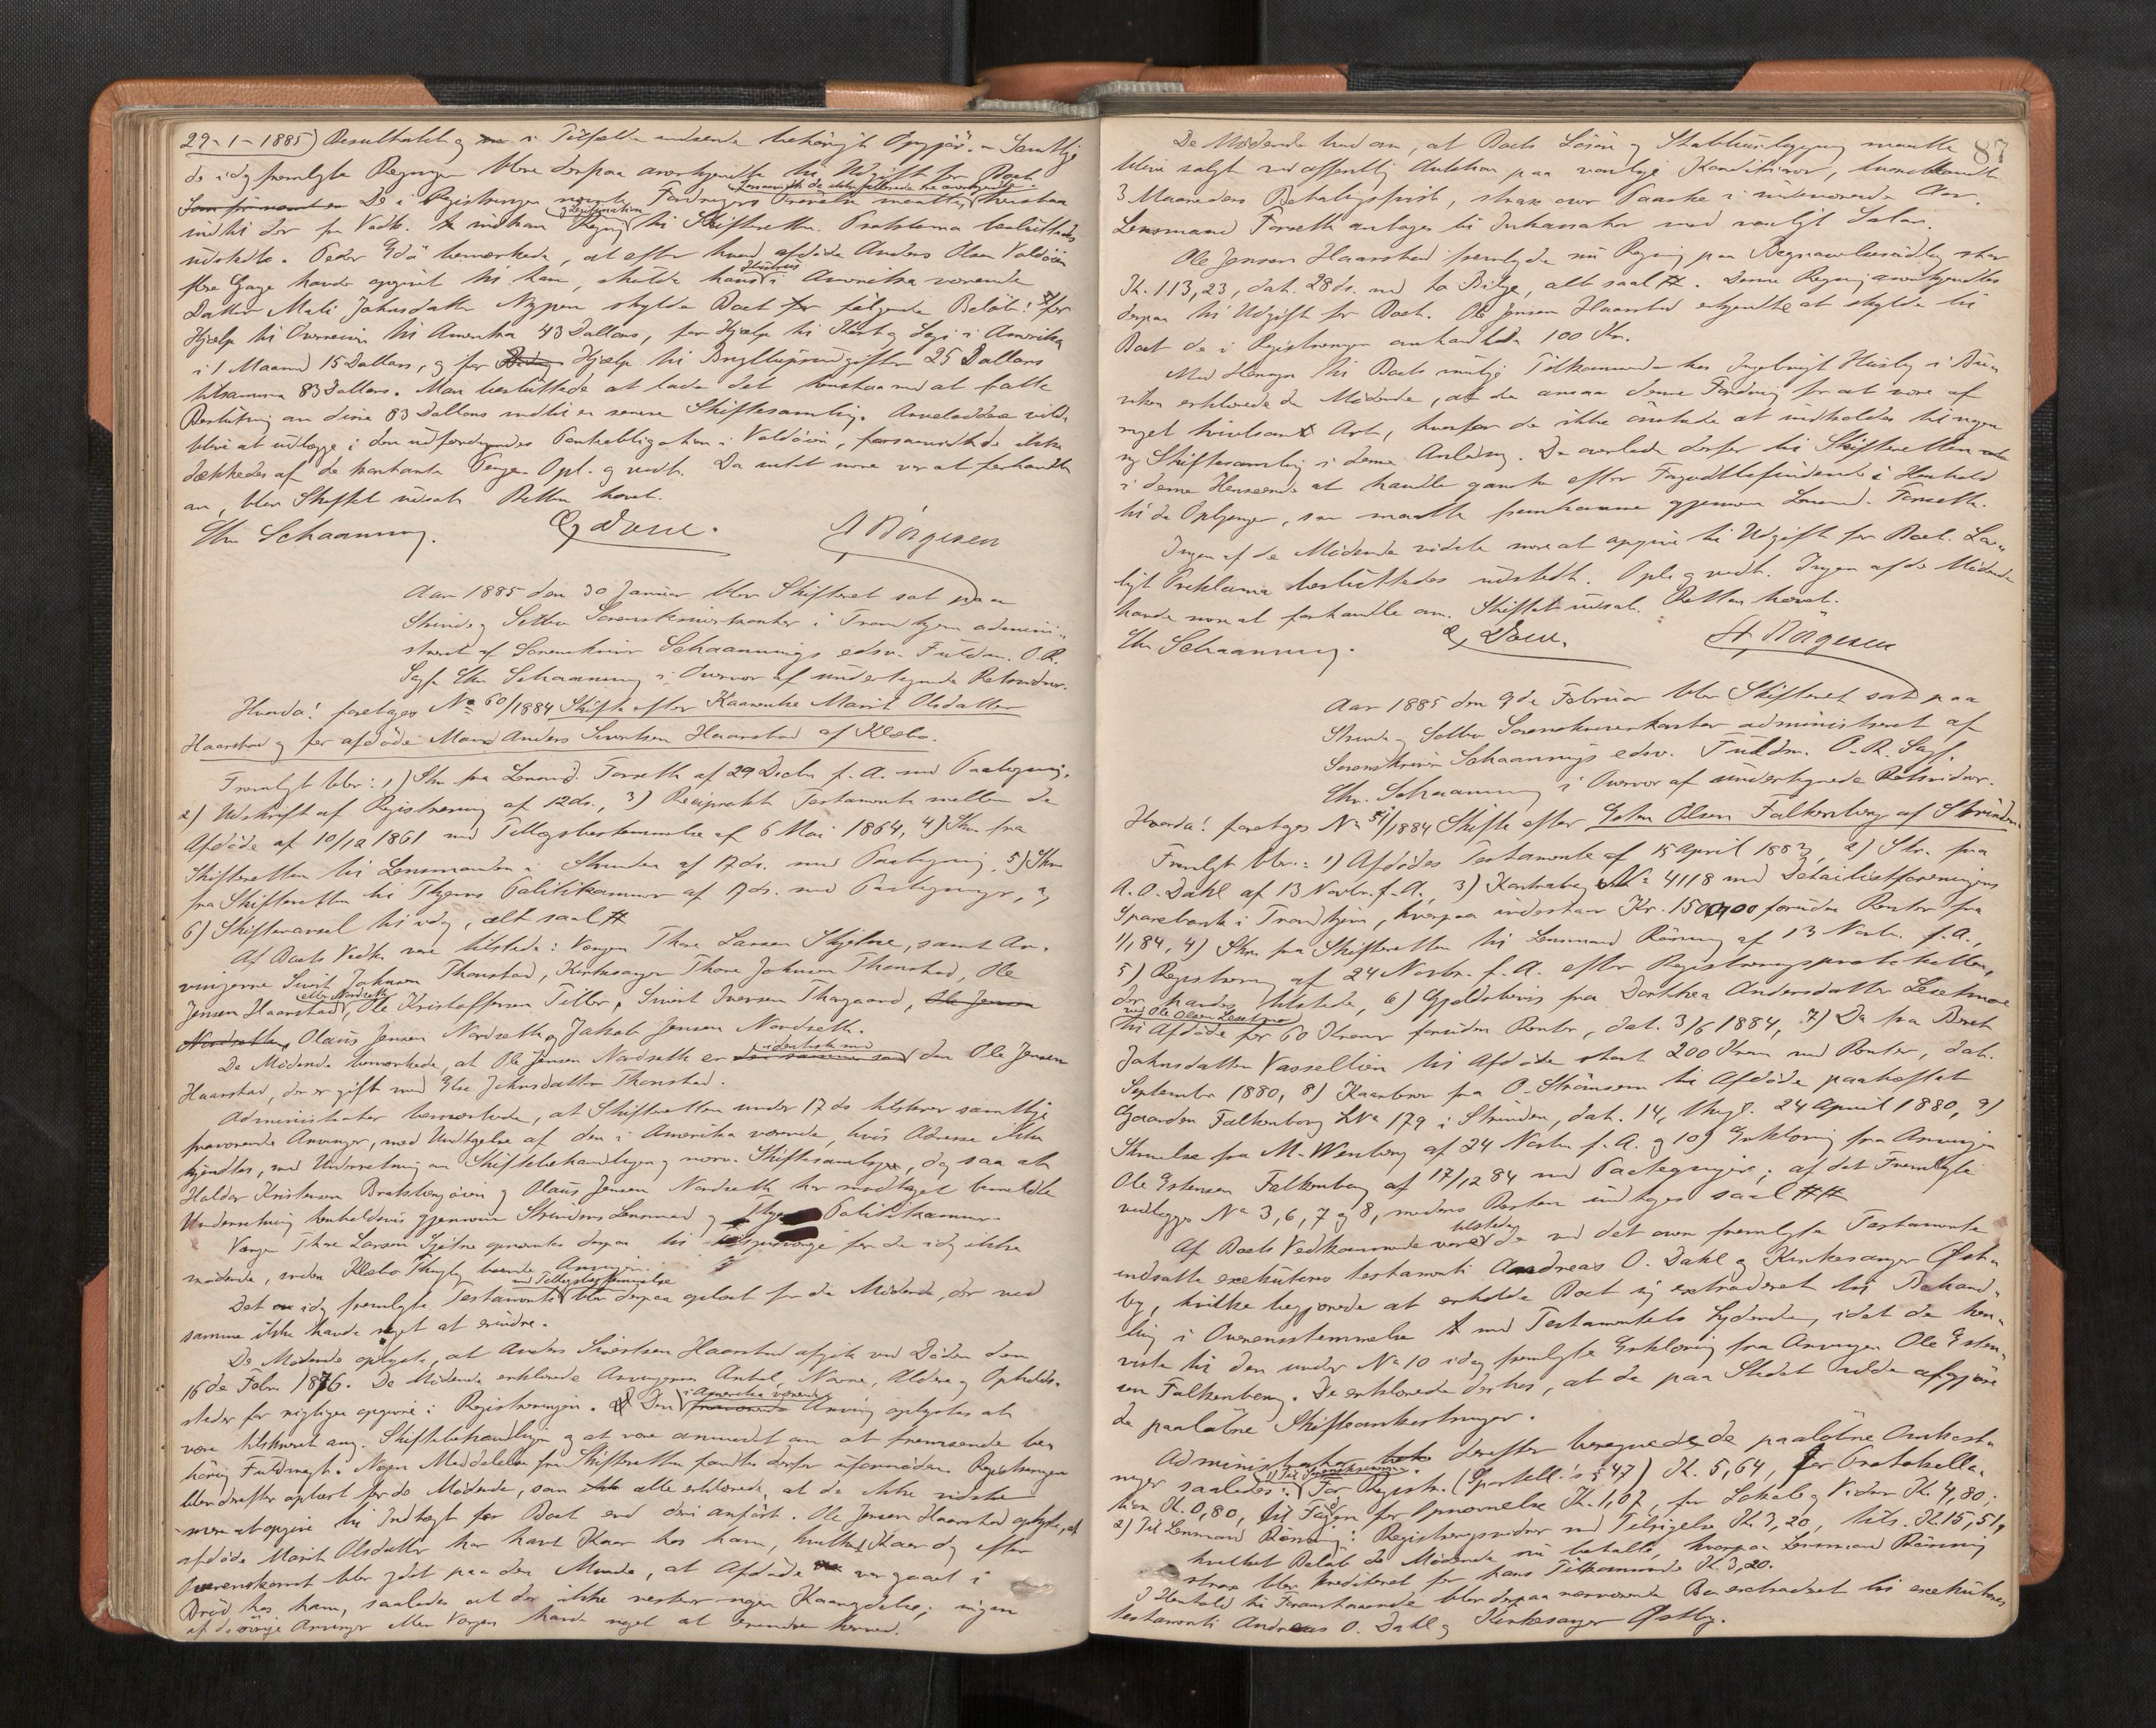 29-1-1885) Resultatet og i Tilfælde indsende behörigt Opgjör. - Samtlige
de idag fremlagte Regninger blev derpaa anerkjendte til Udgift for Boet
De i Registreringen nævnte Fordringer
forsaavidt de ikke
indtil Svar fra Vedk. indkom til Skifteretten. Proklama besluttedes
udstedt. Peder bemærkede, at efter hvad afdöde Anders Olsen Valdöien
flere Gange havde opgivet til ham, skulde hans i Amerika værende
Hustrus
Datter Mali Johnsdatter Nypen skylde Boet følgende Belöb: for
Hjælp til Overreisen til Amerika 43 Dollars, for Hjælp til Kost og Logi i Amerika
i 1 Maaned 15 Dollars, og for Hjælp til Bryllupsudgifter 25 Dollars
tilsammen 83 Dollars. Man besluttede at lade det henstaa med at fatte
Beslutning om disse 83 Dollars indtil en senere Skiftesamling. Arvelodderne vilde
blive at udlægge i den udfærdigende Panteobligation i Valdöien, forsaavidt de ikke
dækkedes af de kontante Penge. Opl. og vedt. Da intet mere var at forhandle
om, blev Skiftet udsat. Retten hævet.
Chr Schaanning. A Börgesen
Aar 1885 den 30 Januar blev Skifteret sat paa
Strinde og Selbu Sorenskriverkontor i Trondhjem admini-
streret af Sorenskriver Schaannings edsv. Fuldm. O. R.
Sagf. Chr Schaanning i Overvær af undertegnede Retsvidner.
Hvorda! foretoges No 60/1884 Skifte efter Kaarenke Marit Olsdatter
Haarstad og før afdöde Mand Anders Sivertsen Haarstad af Klæbo.
Fremlagt blev: 1) Skr. fra Lensmd. Forseth af 29 Decbr f. A. med Paategning,
2) Udskrift af Registrering af 12 ds., 3) Reciprokt Testamente mellem de
Afdöde af 10/12 1861 med Tillægsbestemmelse af 6 Mai 1864, 4) Skr fra
Skifteretten til Lensmanden i Strinden af 17 ds. med Paategning, 5) Skr
fra Skifteretten til Thjems Politikammer af 17 ds. med Paategninger, og
6) Skiftevarsel til idag, alt saal #
Af Boets Vedk. vare tilstede: Værgen Thore Larsen Skjetne, samt Ar-
vingerne Sivert Johnsen Thonstad, Kirkesanger Thore Johnsen Thonstad, Ole
Jensen Haarstad, Ole Kristoffersen Tiller, Sivert Iversen Thorgaard, Ole Jensen
eller Nordseth
Nordseth, Olaus Jensen Nordseth og Jakob Jensen Nordseth.
De Mödende bemærkede, at Ole Jensen Nordseth er den samme som den Ole Jensen
identisk med
Haarstad, der er gift med Johnsdatter Thonstad.
Administrator bemærkede, at Skifteretten under 17 ds tilskrev samtlige
fraværende Arvinger, med Undtagelse af den i Amerika værende, hvis Adresse ikke
kjendtes, med Underretning om Skiftebehandlingen og nærv. Skiftesamling, dog saa at
Haldor Kristensen Bratsbergöien og Olaus Jensen Nordseth har modtaget bemeldte
Underretning henholdsvis gjennem Strindens Lensmand og Thjems Politikammer.
Værge Thore Larsen Skjetne opnævntes derpaa til for de idag ikke
mödende, inden Klæbo Thinglag boende Arvinger.
Det idag fremlagte Testamente blev derpaa oplæst for de Mödende, der ved
med Tillægsbestemmelse
samme ikke havde noget at erindre.
De Mödende oplyste, at Anders Sivertsen Haarstad afgik ved Döden den
16de Febr. 1876. De Mödende erklærede Arvingernes Antal, Navne, Aldere og Opholds-
steder for rigtigen opgivne i Registreringen. Den fraværende Arving oplystes at
i Amerika værende
være tilskrevet ang. Skiftebehandlingen og at være anmodet om at fremsende be-
hörig Fuldmagt. Nogen Meddelelse fra Skifteretten fandtes derfor ufornöden. Registreringen
blev derefter oplæst for de Mödende, som alle erklærede, at de ikke vidste
mere at opgive til Indtægt for Boet end deri anfört. Ole Jensen Haarstad oplyste, at
afdöde Marit Olsdatter har havt Kaar hos ham, hvilket Kaar dog efter
Overenskomst blev ydet paa den Maade, at Afdöde var gaaet i
Bröd hos ham, saaledes at der ikke resterer nogen Kaarydelse; ingen
af de övrige Arvinger eller Værgen havde noget at erindre herved.
87
De Mödende blev om, at Boets Lösöre og Stabbursbygning maatte
blive solgt ved offentlig Auktion paa vanlige Konditioner, hvoriblandt
3 Maaneders Betalingsfrist, strax over Paaske i indeværende Aar.
Lensmand Forseth antages til Inkassator mod vanligt Salær.
Ole Jensen Haarstad fremlagde nu Regning paa Begravelsesudlæg stor
Kr. 113,23, dat. 28 ds. med to Bilage, alt saal #. Denne Regning anerkjendtes
derpaa til Udgift for Boet. Ole Jensen Haarstad erkjendte at skylde til
Boet de i Registreringen anhandlede 100 Kr.
Med Hensyn til Boets mulige Tilkommende hos Ingebrigt Husby i Bu-
viken erklærede de Mödende, at de ansaa denne Fordring for at være af
meget tvivlsom Art, hvorfor de ikke önskede at indkaldes til nogen
ny Skiftesamling i denne Anledning. De overlode derfor til Skifteretten
i denne Henseende at handle ganske efter Forgodtbefindende i Henhold
til de Oplysninger, som maatte fremkomme gjennem Lensmd. Forseth.
Ingen af de Mödende vidste mere at opgive til Udgift for Boet. Lov-
ligt Proklama besluttedes udstedt. Opl. og vedt. Ingen af de Mödende
havde mere at forhandle om. Skiftet udsat. Retten hævet.
Chr Schaanning. A. Börgesen
Aar 1885 den 9de Februar blev Skifteret sat paa
Strinde og Selbu Sorenskriverkontor administreret af
Sorenskriver Schaannings edsv. Fuldm. O. R. Sagf.
Chr. Schaanning i Overvær af undertegnede Retsvidner.
Hvorda! foretoges No 51/1884 Skifte efter Esten Olsen Falkenberg af Strinden.
Fremlagt blev: 1) Afdödes Testamente af 15 April 1883, 2) Skr. fra
A. O. Dahl af 13 Novbr. f. A., 3) Kontrabog No 4118 med Detailistforeningens
Sparebank i Trondhjem, hvorpaa indestaar Kr. 1500,00 foruden Renter fra
1/1 84, 4) Skr. fra Skifteretten til Lensmand Rönning af 13 Novbr. f. A.,
5) Registrering af 24 Novbr. f. A. efter Registreringsprotokollen,
der havdes tilstede, 6) Gjeldsbevis fra Dorthea Andersdatter Lexetmoe
ved Ole Olsen Lexetmoe
til Afdöde for 60 Kroner foruden Renter, dat. 3/6 1884, 7) Do fra Beret
Johnsdatter Vassellien til Afdöde stort 200 Kroner med Renter, dat.
September 1880, 8) Kaarbrev fra O. Strömsem til Afdöde paaheftet
Gaarden Falkenborg LNo 179 i Strinden, dat. 14, thngl. 24 April 1880, 9)
Skrivelse fra M. Wenberg af 24 Novbr. f. A. og 10) Erklæring fra Arvingen
Ole Estensen Falkenberg af 17/12 84 med Paategninger; af det Fremlagte
vedlægges No 3, 6, 7 og 8, medens Resten indtages saal ##
Af Boets Vedkommende vare de ved det oven fremlagte Testamente
tilstede
indsatte executores testamenti Andreas O. Dahl og Kirkesanger Öst-
by, hvilke begjærede at erholde Boet sig extraderet til Behand-
ling i Overensstemmelse med Testamentets Lydende, idet de hen-
viste til den under No 10 idag fremlagte Erklæring fra Arvingen Ole Esten-
sen Falkenberg. De erklærede derhos, at de paa Stedet vilde afgjöre
de paalöbne Skifteomkostninger.
Administrator derefter beregnede de paalöbne Omkost-
ninger saaledes: For Registr. (Sportell.'s § 47) Kr. 5,64, for Protokolla-
1) Til Sorenskriveren:
tion Kr. 0,80, til for Opnævnelse Kr. 1,07, for Lokale og Vidner Kr. 4,80;
tils. Kr. 15,51,
2) Til Lensmand Rönning: Registreringsvidner med Tilsigelse Kr. 3,20,
hvilket Belöb de Mödende nu betalte, hvorpaa Lensmand Rönning
strax blev krediteret for hans Tilkommende Kr. 3,20.
I Henhold til Foranstaaende blev derpaa nærværende Bo extraderet til executores
testamenti Andreas O. Dahl og Kirkesanger Östby.